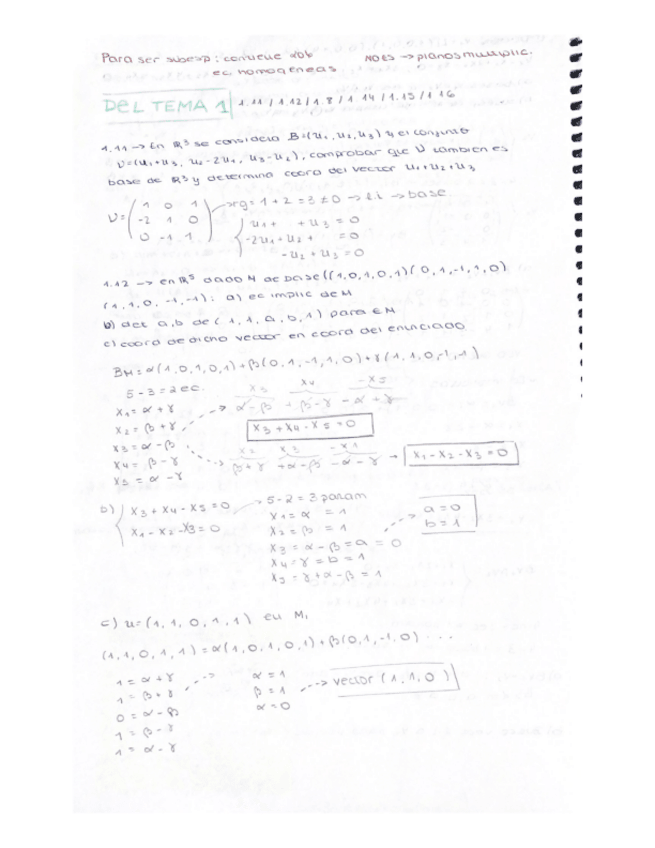 Para ser subesp: contiene dob
NOES → planos multiplic.
ec. homogéneas
DEL TEMA 1 1.11 / 1.12 / 1.8 / 1.14 / 1.15 / 1.16
1.11 → En R³ se considera B=(u₁, u₂, u₃) y el conjunto
U=(u₁+u₃, u₂-2u₁, u₃-u₂), comprobar que U también es
base de R³ y determina coord del vector u₁+u₂+u₃
U= (1 0 1
-2 1 0
0 -1 1) → rg = 1 + 2 = 3 ≠ 0 → l.i → base
u₁ + u₃ = 0
-2u₁ + u₂ + = 0
- u₂ + u₃ = 0
1.12 → en R⁵ dado M de base ((1,0,1,0,1)(0,1,-1,1,0)
(1,1,0,-1,-1): a) ec implic de M
b) det a,b de (1,1,a,b,1) para ∈ M
c) coord de dicho vector en coord del enunciado
BM = α(1,0,1,0,1)+β(0,1,-1,1,0)+γ(1,1,0,-1,-1)
5-3 = 2 ec.
x₃ x₄ -x₅
x₁ = α + γ
α - β + β - γ - α + γ
x₂ = β + γ
x₃ + x₄ - x₅ = 0
x₃ = α - β
x₂ x₃ -x₁
x₄ = β - γ
β + γ + α - β - α - γ → x₁ - x₂ - x₃ = 0
x₅ = α - γ
b) x₃ + x₄ - x₅ = 0 → 5-2 = 3 param
x₁ - x₂ - x₃ = 0
x₁ = α = 1
x₂ = β = 1
x₃ = α - β = a = 0
x₄ = γ = b = 1
x₅ = γ + α - β = 1
a = 0
b = 1
c) u = (1,1,0,1,1) en M,
(1,1,0,1,1) = α(1,0,1,0,1) + β(0,1,-1,0) ...
1 = α + γ
1 = β + γ
0 = α - β
1 = β - γ
1 = α - γ
α = 1
β = 1
α = 0
→ vector (1,1,0)